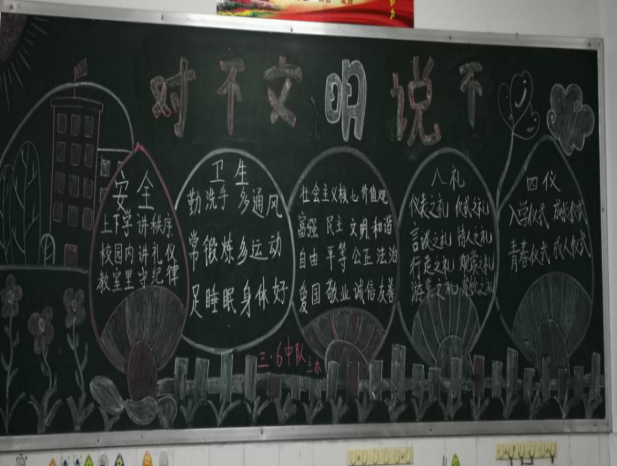 对不文明说不
安全
上下学讲秩序
校园内讲礼仪
教室里守纪律
卫生
勤洗手多通风
常锻炼多运动
足睡眠身体好
社会主义核心价值观
富强 民主 文明 和谐
自由 平等 公正 法治
爱国 敬业 诚信 友善
八礼
仪表之礼 仪式之礼
言谈之礼 待人之礼
行走之礼 观赏之礼
游览之礼 餐饮之礼
四仪
入学仪式 成长仪式
青春仪式 成人仪式
三·6中队主办